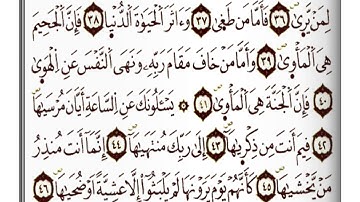 لِمَن يَرَىٰ ٣٦ فَأَمَّا مَن طَغَىٰ ٣٧ وَءَاثَرَ ٱلْحَيَوٰةَ ٱلدُّنْيَا ٣٨ فَإِنَّ ٱلْجَحِيمَ
هِيَ ٱلْمَأْوَىٰ ٣٩ وَأَمَّا مَنْ خَافَ مَقَامَ رَبِّهِۦ وَنَهَى ٱلنَّفْسَ عَنِ ٱلْهَوَىٰ
٤٠ فَإِنَّ ٱلْجَنَّةَ هِيَ ٱلْمَأْوَىٰ ٤١ يَسْـَٔلُونَكَ عَنِ ٱلسَّاعَةِ أَيَّانَ مُرْسَىٰهَا
٤٢ فِيمَ أَنتَ مِن ذِكْرَىٰهَا ٤٣ إِلَىٰ رَبِّكَ مُنتَهَىٰهَا ٤٤ إِنَّمَا أَنتَ مُنذِرُ
مَن يَخْشَىٰهَا ٤٥ كَأَنَّهُمْ يَوْمَ يَرَوْنَهَا لَمْ يَلْبَثُوٓا۟ إِلَّا عَشِيَّةً أَوْ ضُحَىٰهَا ٤٦